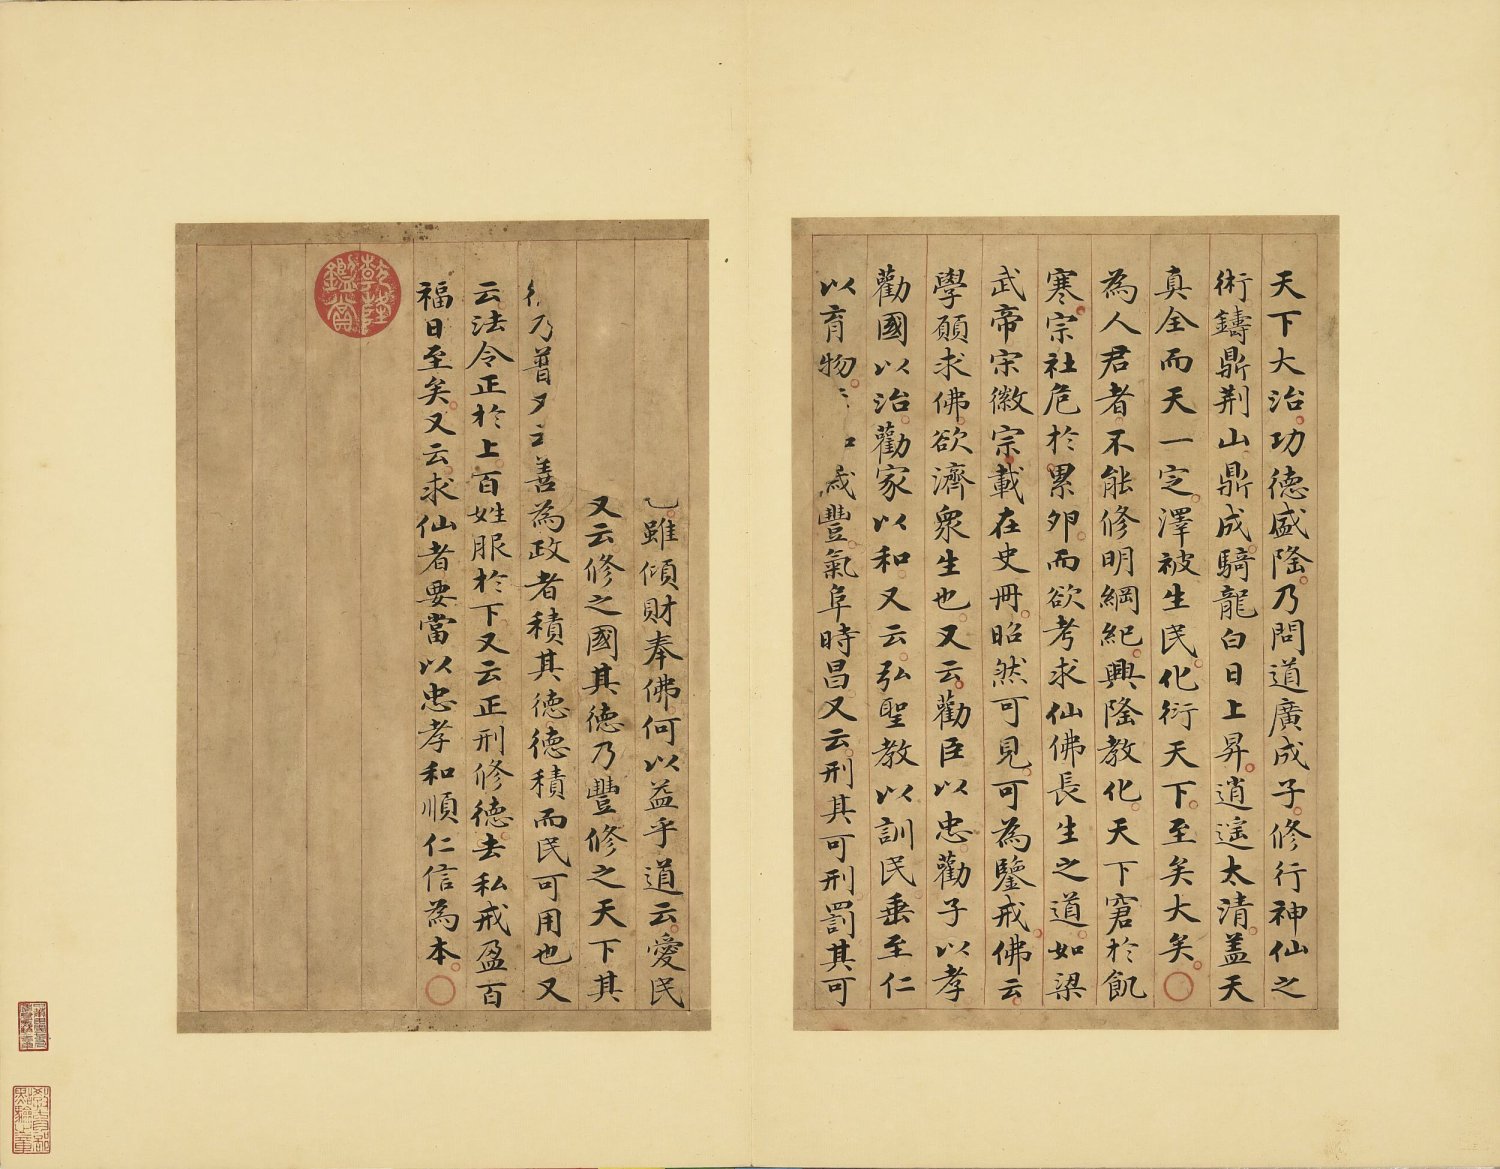 天下大治功德盛隆乃問道廣成子修行神仙之
術鑄鼎荆山鼎成騎龍白日上昇逍遥太清蓋天
真全而天一定澤被生民化衍天下至矣大矣
為人君者不能修明綱紀興隆教化天下窘於飢
寒宗社危於累卵而欲考求仙佛長生之道如梁
武帝宋徽宗載在史冊昭然可見可為鑒戒佛云
學願求佛欲濟衆生也又云勸臣以忠勸子以孝
勸國以治勸家以和又云弘聖教以訓民垂至仁
以育物歲豐氣阜時昌又云刑其可刑罰其可
雖傾財奉佛何以益乎道云愛民
又云修之國其德乃豐修之天下其
乃普善為政者積其德德積而民可用也又
云法令正於上百姓服於下又云正刑修德去私戒盈百
福日至矣又云求仙者要當以忠孝和順仁信為本
乾隆
鑑賞